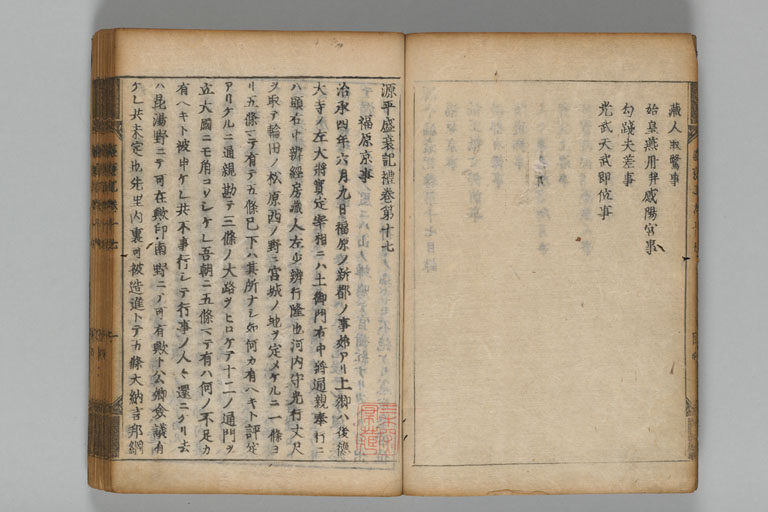 蔵人取鷺事
始皇燕丹并咸陽宮事
勾踐夫差事
光武天武即位事
源平盛衰記禮巻第十七
福原京事
治承四年六月九日福原ノ新都ノ事始アリ上卿ハ後徳
大寺ノ左大將實定宰相ニハ土御門右中將通親奉行ニ
ハ頭右中辨経房蔵人左少辨行隆也河内守光行丈尺
ヲ取テ輪田ノ松原西ノ野ニ宮城ノ地ヲ定メケルニ一條ヨ
リ五條ニテ有テ五條已下ハ其所ナシ如何カ有ヘキト評定
アリケルニ通親勘テ三條ノ大路ヲヒロケテ十二ノ通門ヲ
立大國ニモ角コソシケレ吾朝ニ五條ニテ有ハ何ノ不足カ
有ヘキト被申ケレ共不事行シテ行事ノ人々還ニケリ去
ハ昆陽野ニテ可在歟印南野ニテ可有歟ト公卿僉議有
ケレ共未定也先里内裏可被造進トテ五條大納言邦綱